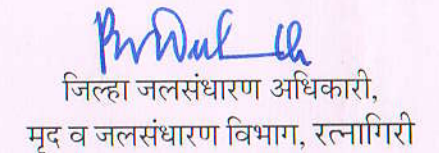 जिल्हा जलसंधारण अधिकारी,
मृद व जलसंधारण विभाग, रत्नागिरी